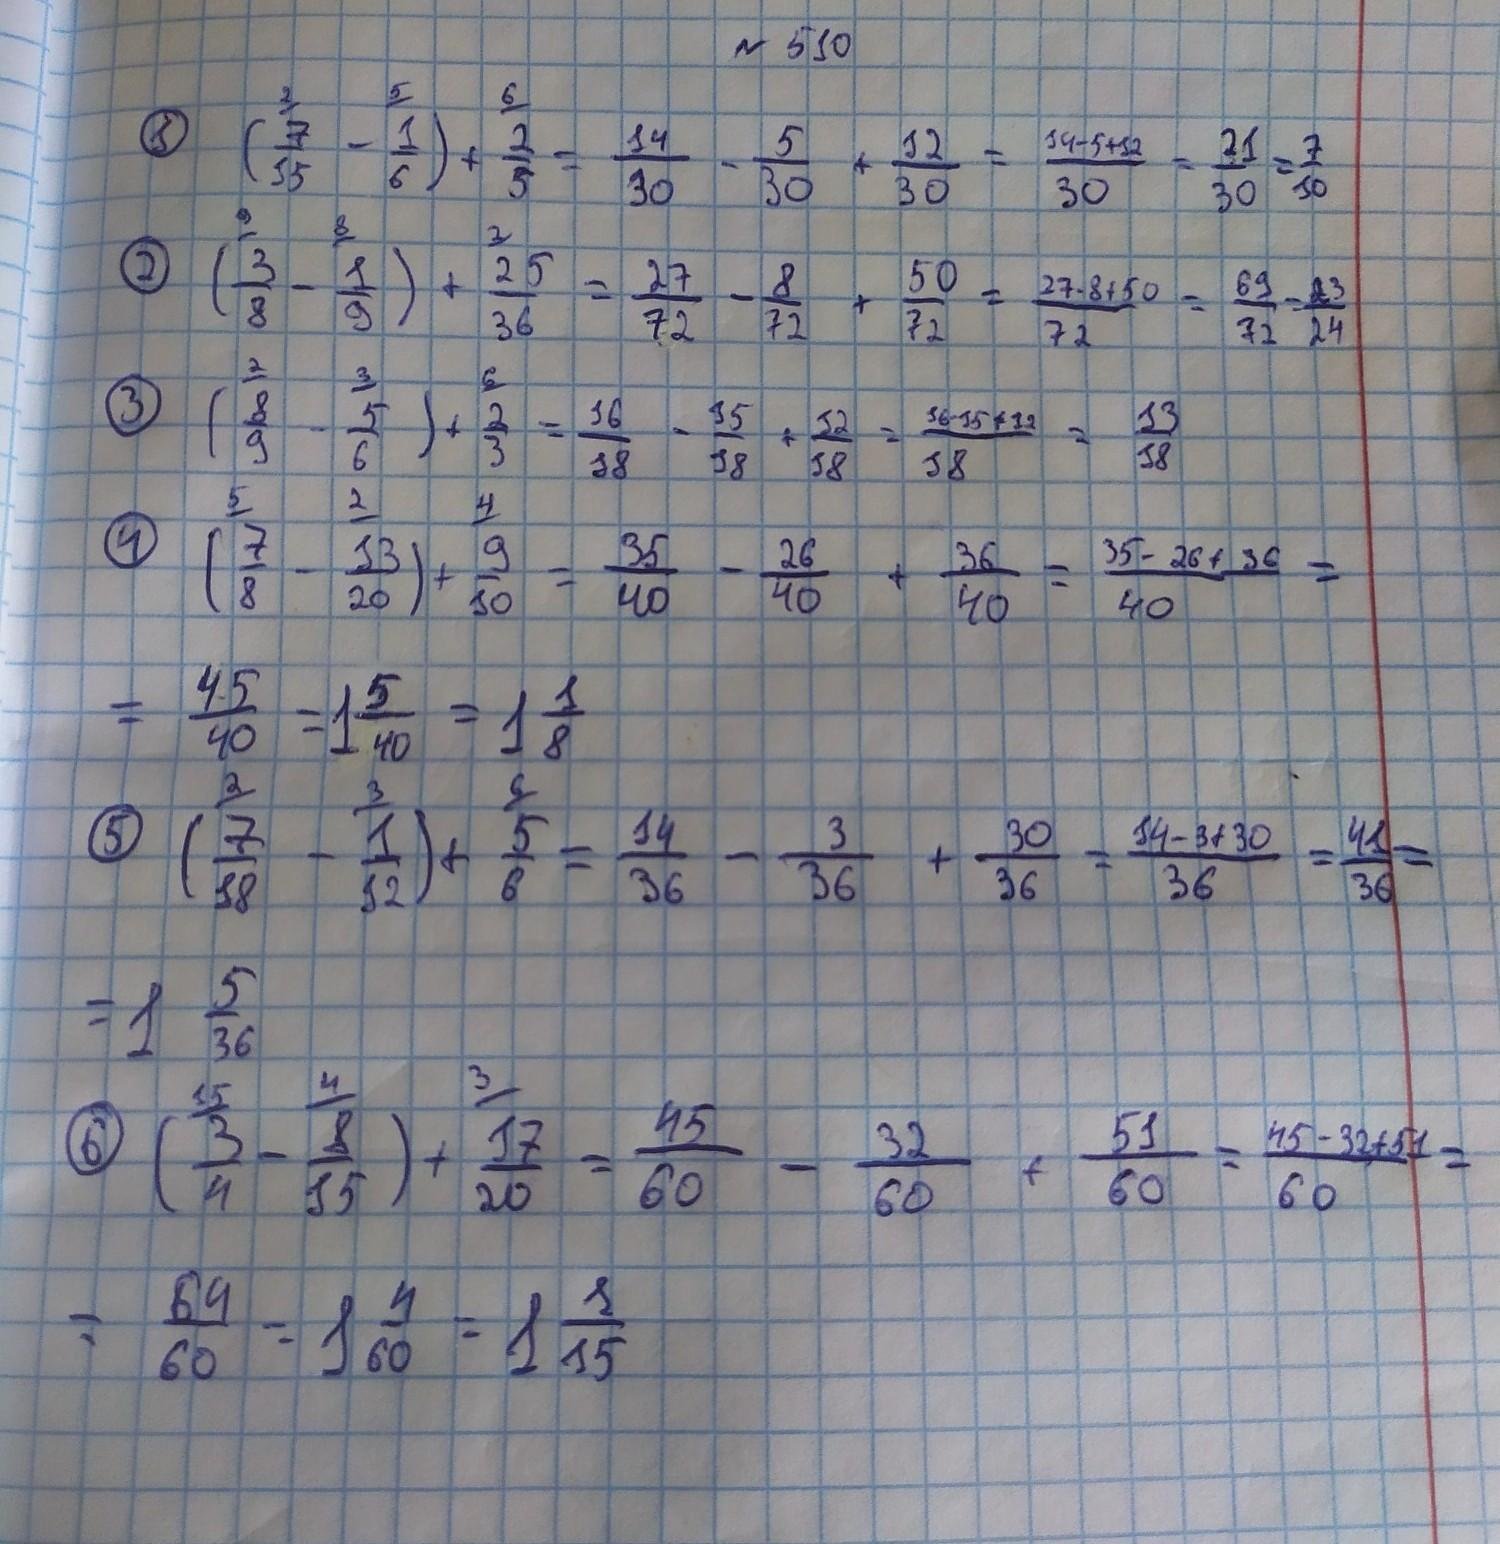 № 510
① (7/15 2/ - 1/6 5/) + 2/5 6/ = 14/30 - 5/30 + 12/30 = 14-5+12/30 = 21/30 = 7/10
② (3/8 9/ - 1/9 8/) + 25/36 2/ = 27/72 - 8/72 + 50/72 = 27-8+50/72 = 69/72 = 23/24
③ (8/9 2/ - 5/6 3/) + 2/3 6/ = 16/18 - 15/18 + 12/18 = 16-15+12/18 = 13/18
④ (7/8 5/ - 13/20 2/) + 9/10 4/ = 35/40 - 26/40 + 36/40 = 35-26+36/40 =
= 45/40 = 1 5/40 = 1 1/8
⑤ (7/18 2/ - 1/12 3/) + 5/6 6/ = 14/36 - 3/36 + 30/36 = 14-3+30/36 = 41/36 =
= 1 5/36
⑥ (3/4 15/ - 8/15 4/) + 17/20 3/ = 45/60 - 32/60 + 51/60 = 45-32+51/60 =
= 64/60 = 1 4/60 = 1 1/15